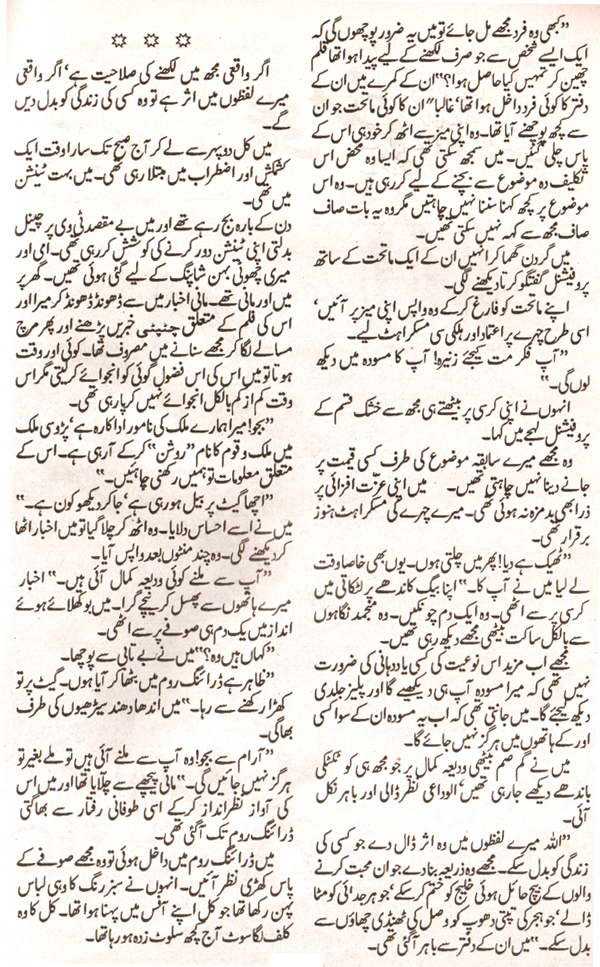 ”کبھی وہ فرد مجھے مل جائے تو میں یہ ضرور پوچھوں گی کہ
ایک ایسے شخص سے جو صرف لکھنے کے لیے پیدا ہوا تھا قلم
چھین کر تمہیں کیا حاصل ہوا؟“ ان کے کمرے میں ان کے
دفتر کا کوئی فرد داخل ہوا تھا‘ غالبا“ ان کا کوئی ماتحت جو ان
سے کچھ پوچھنے آیا تھا۔ وہ اپنی میز سے اٹھ کر خود ہی اس کے
پاس چلی گئیں۔ میں سمجھ سکتی تھی کہ ایسا وہ محض اس
تکلیف دہ موضوع سے بچنے کے لیے کر رہی ہیں۔ وہ اس
موضوع پر کچھ کہنا سننا نہیں چاہتیں مگر وہ یہ بات صاف
صاف مجھ سے کہہ نہیں سکتی تھیں۔
میں گردن گھما کر انہیں ان کے ایک ماتحت کے ساتھ
پروفیشنل گفتگو کرتا دیکھنے لگی۔
اپنے ماتحت کو فارغ کر کے وہ واپس اپنی میز پر آئیں‘
اسی طرح چہرے پر اعتماد اور ہلکی سی مسکراہٹ لیے۔
”آپ فکر مت کیجئے زنیرہ! آپ کا مسودہ میں دیکھ
لوں گی۔“
انہوں نے اپنی کرسی پر بیٹھتے ہی مجھ سے خشک قسم کے
پروفیشنل لہجے میں کہا۔
وہ مجھے میرے سابقہ موضوع کی طرف کسی قیمت پر
جانے دینا نہیں چاہتی تھیں۔ میں اپنی عزت افزائی پر
ذرا بھی بدمزہ نہ ہوئی تھی۔ میرے چہرے کی مسکراہٹ ہنوز
برقرار تھی۔
”ٹھیک ہے دیا! پھر میں چلتی ہوں۔ یوں بھی خاصا وقت
لے لیا میں نے آپ کا۔“ اپنا بیگ کاندھے پر لٹکاتی میں
کرسی پر سے اٹھی۔ وہ ایک دم چونکیں۔ وہ منجمد نگاہوں
سے بالکل ساکت بیٹھی مجھے دیکھ رہی تھیں۔
مجھے اب مزید اس نوعیت کی کسی یاد دہانی کی ضرورت
نہیں تھی کہ میرا مسودہ آپ ہی دیکھیے گا اور پلیز جلدی
دیکھ لیجئے گا۔ میں جانتی تھی کہ اب یہ مسودہ ان کے سوا کسی
اور کے ہاتھوں میں ہرگز نہیں جائے گا۔
میں نے گم صم بیٹھی ودیعہ کمال پر جو مجھ ہی کو ٹکٹکی
باندھے دیکھے جا رہی تھیں‘ الوداعی نظر ڈالی اور باہر نکل
آئی۔
”اللہ میرے لفظوں میں وہ اثر ڈال دے جو کسی کی
زندگی کو بدل سکے۔ مجھے وہ ذریعہ بنا دے جو ان محبت کرنے
والوں کے بیچ حائل ہوئی خلیج کو ختم کر سکے‘ جو ہر جدائی کو مٹا
ڈالے‘ جو ہجر کی تپتی دھوپ کو وصل کی ٹھنڈی چھاؤں سے
بدل سکے۔“ میں ان کے دفتر سے باہر آ گئی تھی۔
☼ ☼ ☼
اگر واقعی مجھ میں لکھنے کی صلاحیت ہے‘ اگر واقعی
میرے لفظوں میں اثر ہے تو وہ کسی کی زندگی کو بدل دیں
گے۔
میں کل دوپہر سے لے کر آج صبح تک سارا وقت ایک
کشمکش اور اضطراب میں مبتلا رہی تھی۔ میں بہت ٹینشن
میں تھی۔
دن کے بارہ بج رہے تھے اور میں بے مقصد ٹی وی پر چینل
بدلتی اپنی ٹینشن دور کرنے کی کوشش کر رہی تھی۔ امی اور
میری چھوٹی بہن شاپنگ کے لیے گئی ہوئی تھیں۔ گھر پر
میں اور مانی تھے۔ مانی اخبار میں سے ڈھونڈ ڈھونڈ کر میرا اور
اس کی فلم کے متعلق چٹپٹی خبریں پڑھنے اور پھر مرچ
مسالے لگا کر مجھے سنانے میں مصروف تھا۔ کوئی اور وقت
ہوتا تو میں اس کی اس فضول گوئی کو انجوائے کر لیتی مگر اس
وقت کم از کم بالکل انجوائے نہیں کر پا رہی تھی۔
”بجو! میرا ہمارے ملک کی نامور اداکارہ ہے‘ پڑوسی ملک
میں ملک و قوم کا نام ”روشن“ کر کے آ رہی ہے۔ اس کے
متعلق معلومات تو ہمیں رکھنی چاہئیں۔“
”اچھا گیٹ پر بیل ہو رہی ہے‘ جا کر دیکھو کون ہے۔“
میں نے اسے احساس دلایا۔ وہ اٹھ کر چلا گیا تو میں اخبار اٹھا
کر دیکھنے لگی۔ وہ چند منٹوں بعد واپس آیا۔
”آپ سے ملنے کوئی ودیعہ کمال آئی ہیں۔“ اخبار
میرے ہاتھوں سے پھسل کر نیچے گرا۔ میں بوکھلائے ہوئے
انداز میں یک دم ہی صوفے پر سے اٹھی۔
”کہاں ہیں وہ؟“ میں نے بے تابی سے پوچھا۔
”ظاہر ہے ڈرائنگ روم میں بٹھا کر آیا ہوں۔ گیٹ پر تو
کھڑا رکھنے سے رہا۔“ میں اندھا دھند سیڑھیوں کی طرف
بھاگی۔
”آرام سے بجو! وہ آپ سے ملنے آئی ہیں تو ملے بغیر تو
ہرگز نہیں جائیں گی۔“ مانی پیچھے سے چلایا تھا اور میں اس
کی آواز نظر انداز کر کے اسی طوفانی رفتار سے بھاگتی
ڈرائنگ روم تک آ گئی تھی۔
میں ڈرائنگ روم میں داخل ہوئی تو وہ مجھے صوفے کے
پاس کھڑی نظر آئیں۔ انہوں نے سبز رنگ کا وہی لباس
پہن رکھا تھا جو کل اپنے آفس میں پہنا ہوا تھا۔ کل کا وہ
کلف لگا سوٹ آج کچھ سلوٹ زدہ ہو رہا تھا۔